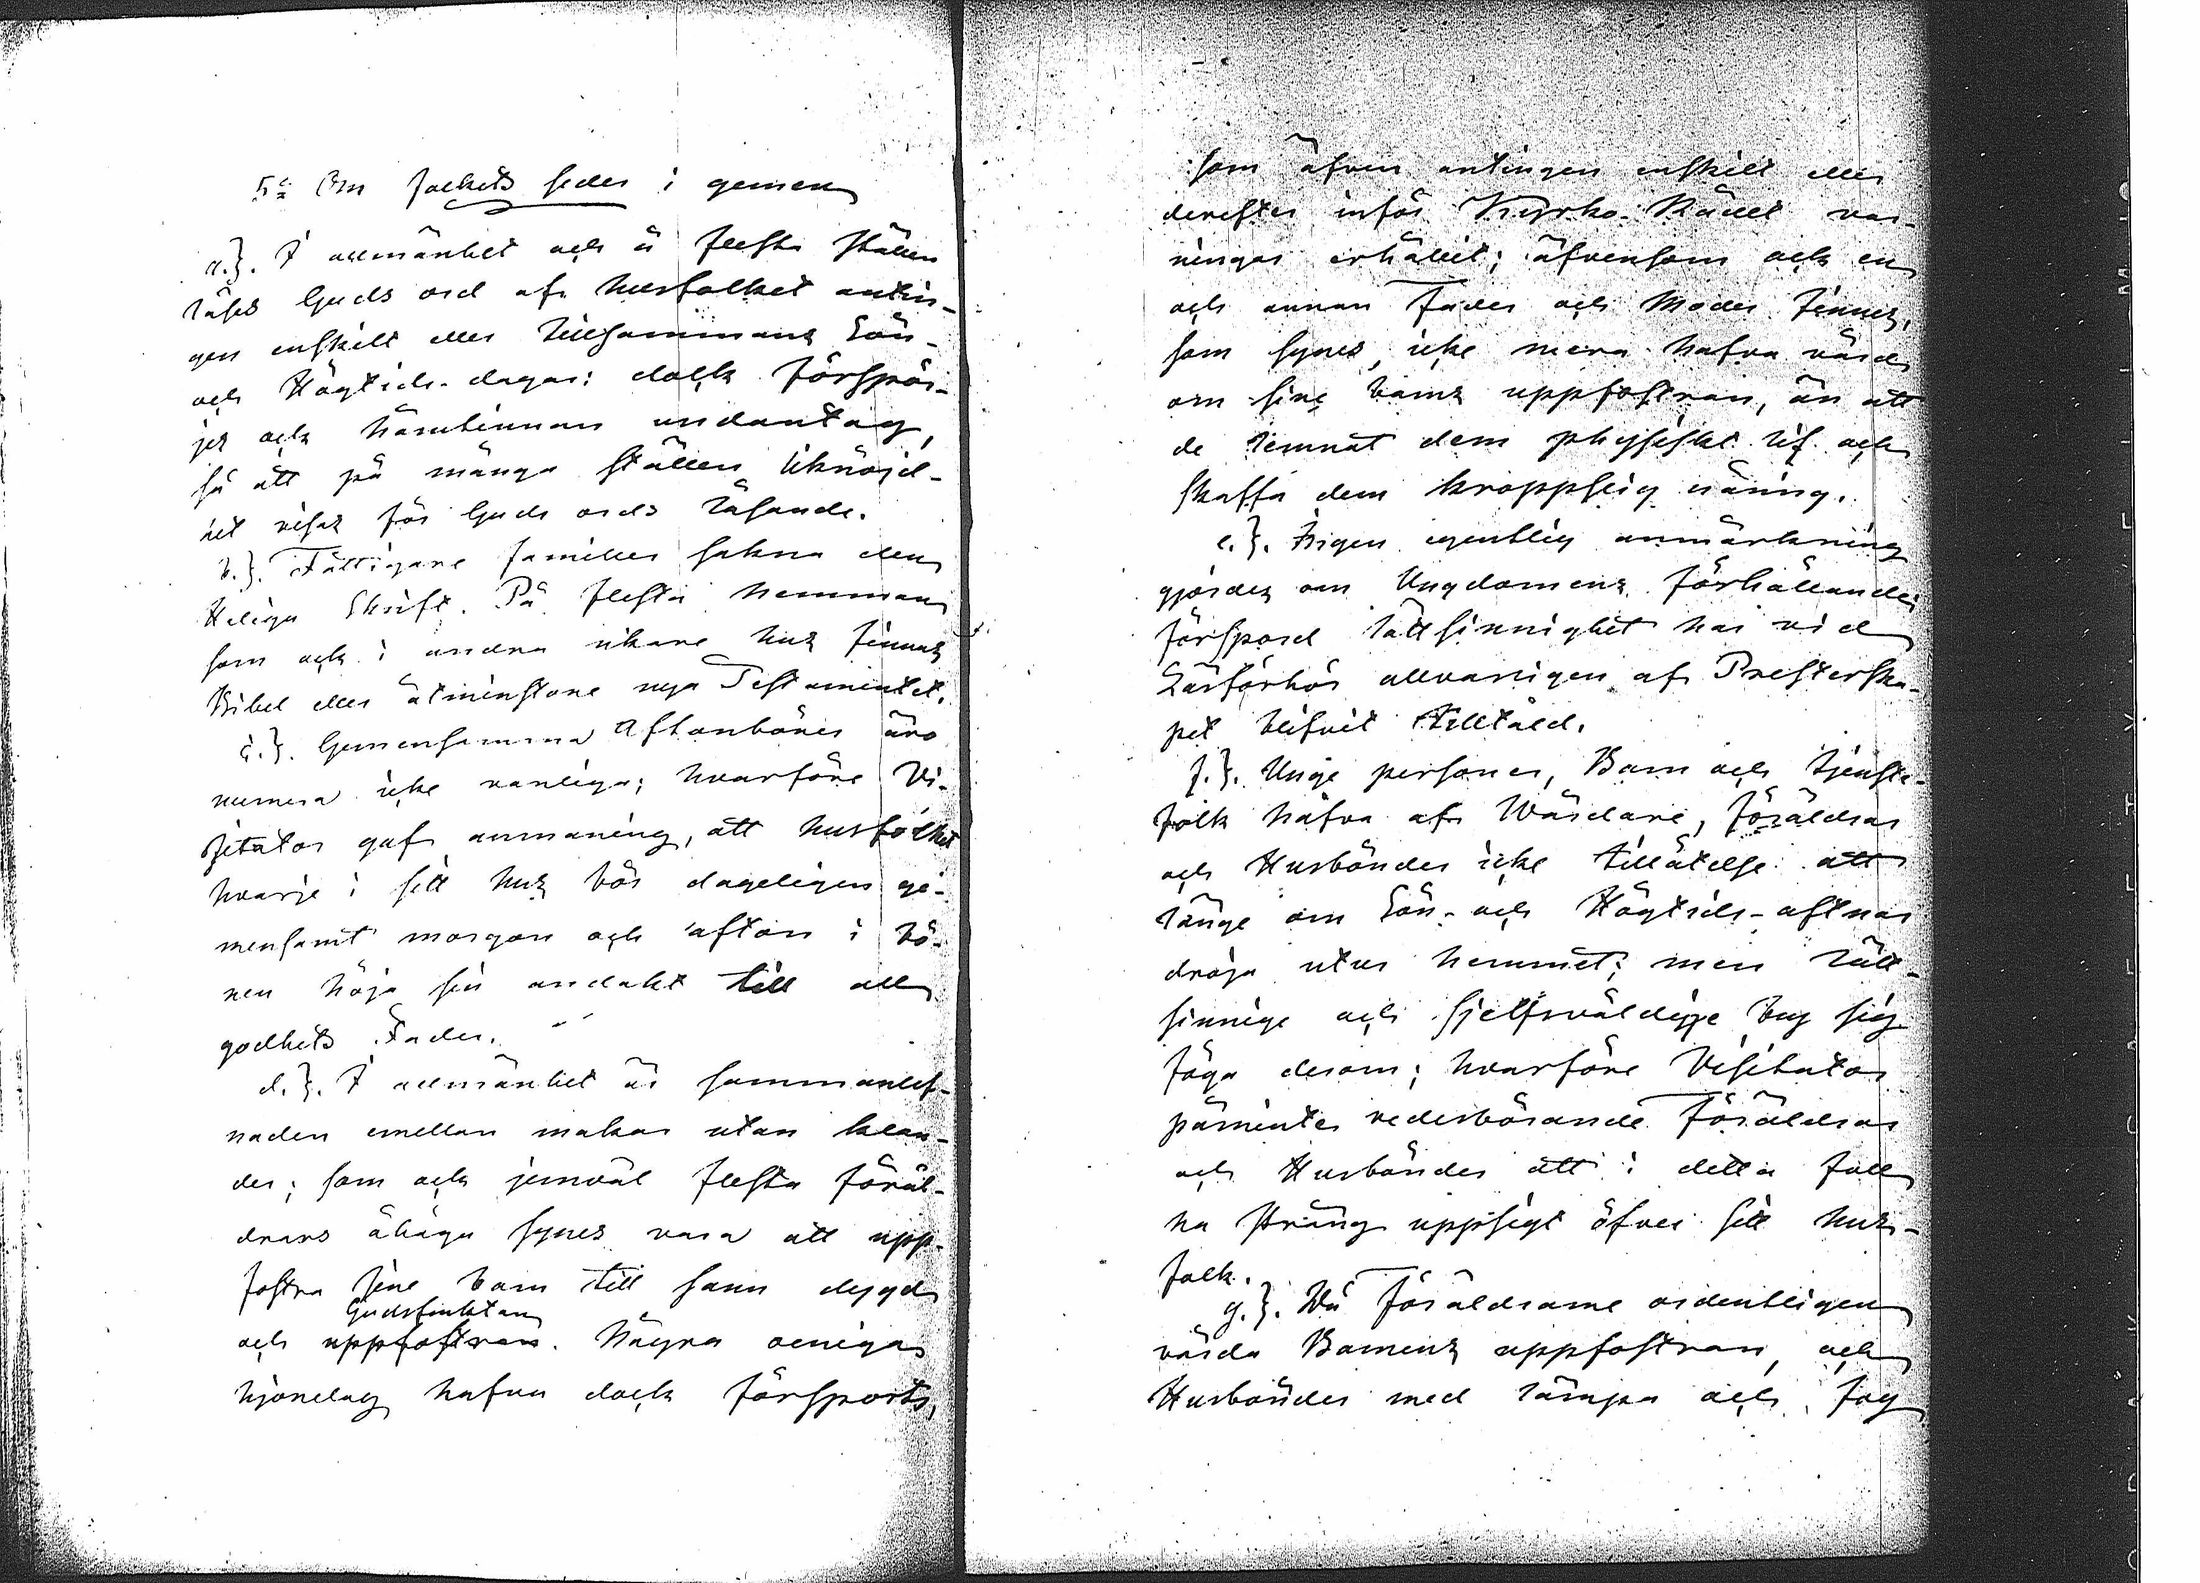 5:a Om folkets seder i gemen
a.}. I allmänhet och å flesta ställen
läses Guds ord af husfolket antin-
gen enskilt eller tillsammans Sön-
och Högtids-dagar: dock förspör-
jes ock härutinnan undantag,
så att på många ställen liknöjd-
het visas för Guds ords läsande.
b.}. Fattigare familler sakna den
Heliga Skrift. På flesta hemman
som ock i andra rikare hus finnas
Bibel eller åtminstone nya Testamentet.
c.}. Gemensamma Aftonböner äro
numera icke vanliga; hvarföre Vi-
sitator gaf anmaning, att husfolket
hvarje i sitt hus bör dageligen ge-
mensamt morgon och afton i bö-
nen höja sin andakt till all
godhets Fader.
d.}. I allmänhet är sammanlef-
naden emellan makar utan klan-
der; som ock jemväl flesta föräl-
drars åhåga synes vara att upp-
fostra sine barn till sann dygd
Gudsfruktan
och uppfostran. Några oeniga
hjonelag hafva dock försports,
som äfven antingen enskilt eller
derefter inför Kyrko-Rådet var-
ningar erhållit; äfvensom ock en
och annan Fader och Moder finnes,
som synes icke mera hafva vård
om sine barns uppfostran, än att
de lemnat dem physiskt lif och
skaffa dem kroppslig näring.
e.}. Ingen egentlig anmärkning
gjordes om Ungdomens förhållande;
förspord lättsinnighet har vid
Läsförhör allvarligen af Presterska-
pet blifvit tilltald.
f.}. Unge personer, Barn och tjenste-
folk hafva af Wårdare, föräldrar
och Husbönder icke tillåtelse att
länge om Sön- och Högtids-aftnar
dröja utur hemmet; men lätt-
sinnige och sjelfsvåldige bry sig
föga derom; hvarföre Visitator
påminte vederbörande Föräldrar
och Husbönder att i detta fall
ha sträng uppsigt öfver sitt hus-
folk.
g.}. Då Föräldrarne ordentligen
vårda Barnens uppfostran, och
Husbönder med lämpa och fog